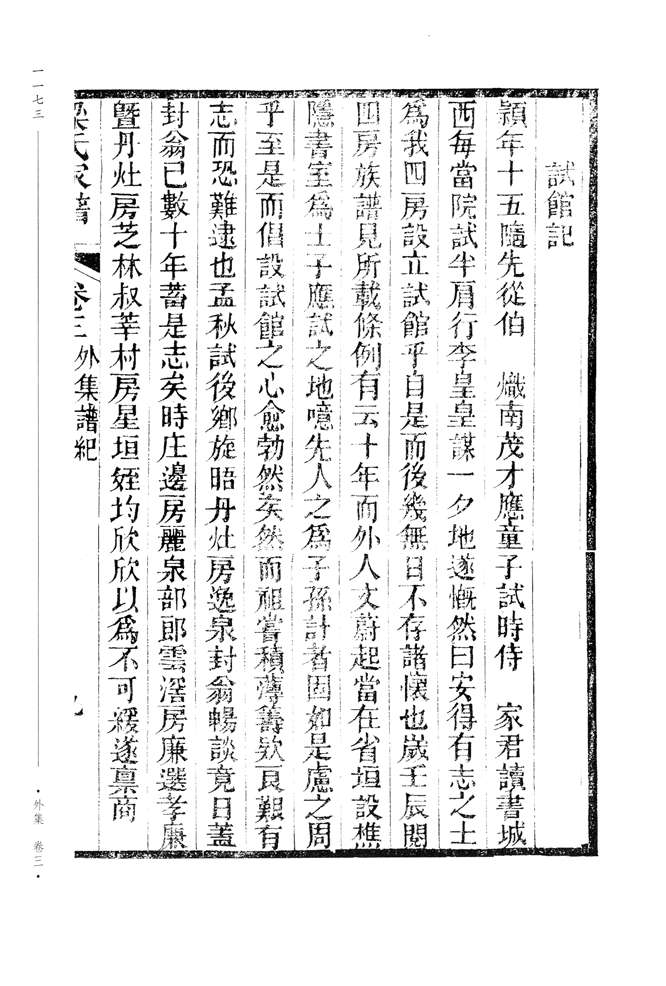 試館記
頴年十五隨先從伯　熾南茂才應童子試時侍　家君讀書城
西每當院試半肩行李皇皇謀一夕地遂慨然曰安得有志之士
爲我四房設立試館乎自是而後幾無日不存諸懷也嵗壬辰閱
四房族譜見所載條例有云十年而外人文蔚起當在省垣設樵
隱書室爲士子應試之地噫先人之爲子孫計者固如是慮之周
乎至是而倡設試館之心愈勃然矣然而祖嘗積薄籌欵良艱有
志而恐難逮也孟秋試後鄉旋晤丹灶房逸泉封翁暢談竟日蓋
封翁已數十年蓄是志矣時庄邊房麗泉部郎雲滘房廉選孝廉
暨丹灶房芝林叔莘村房星垣姪均欣欣以爲不可緩遂禀商
梁氏家譜　卷三　外集譜紀　九
一一七三
·外集　卷三·